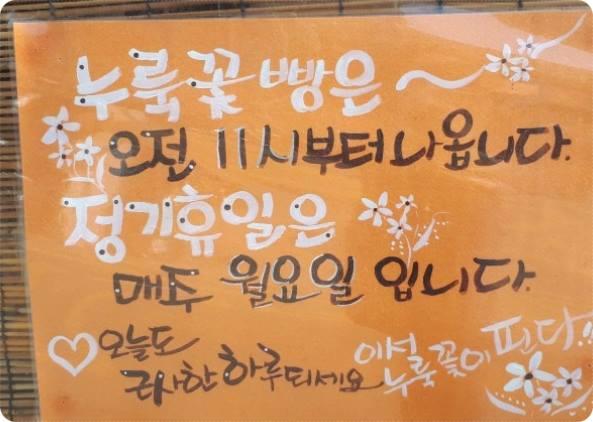 누룩꽃 빵은~
오전 11시부터 나옵니다.
정기휴일은
매주 월요일 입니다.
♡오늘도
하루 되세요
이서
누룩꽃이 핀다..!